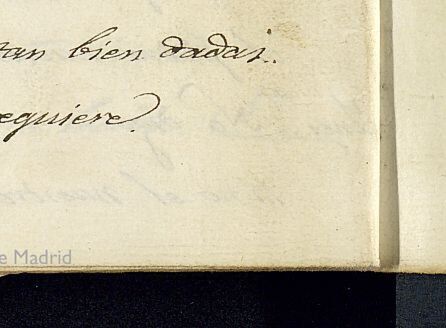 tan bien dadas.
equiere.
e Madrid